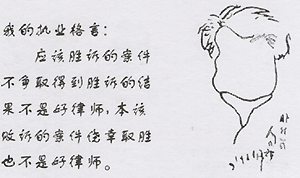 我的执业格言：
应该胜诉的案件
不争取得到胜诉的结
果不是好律师，本该
败诉的案件侥幸取胜
也不是好律师。